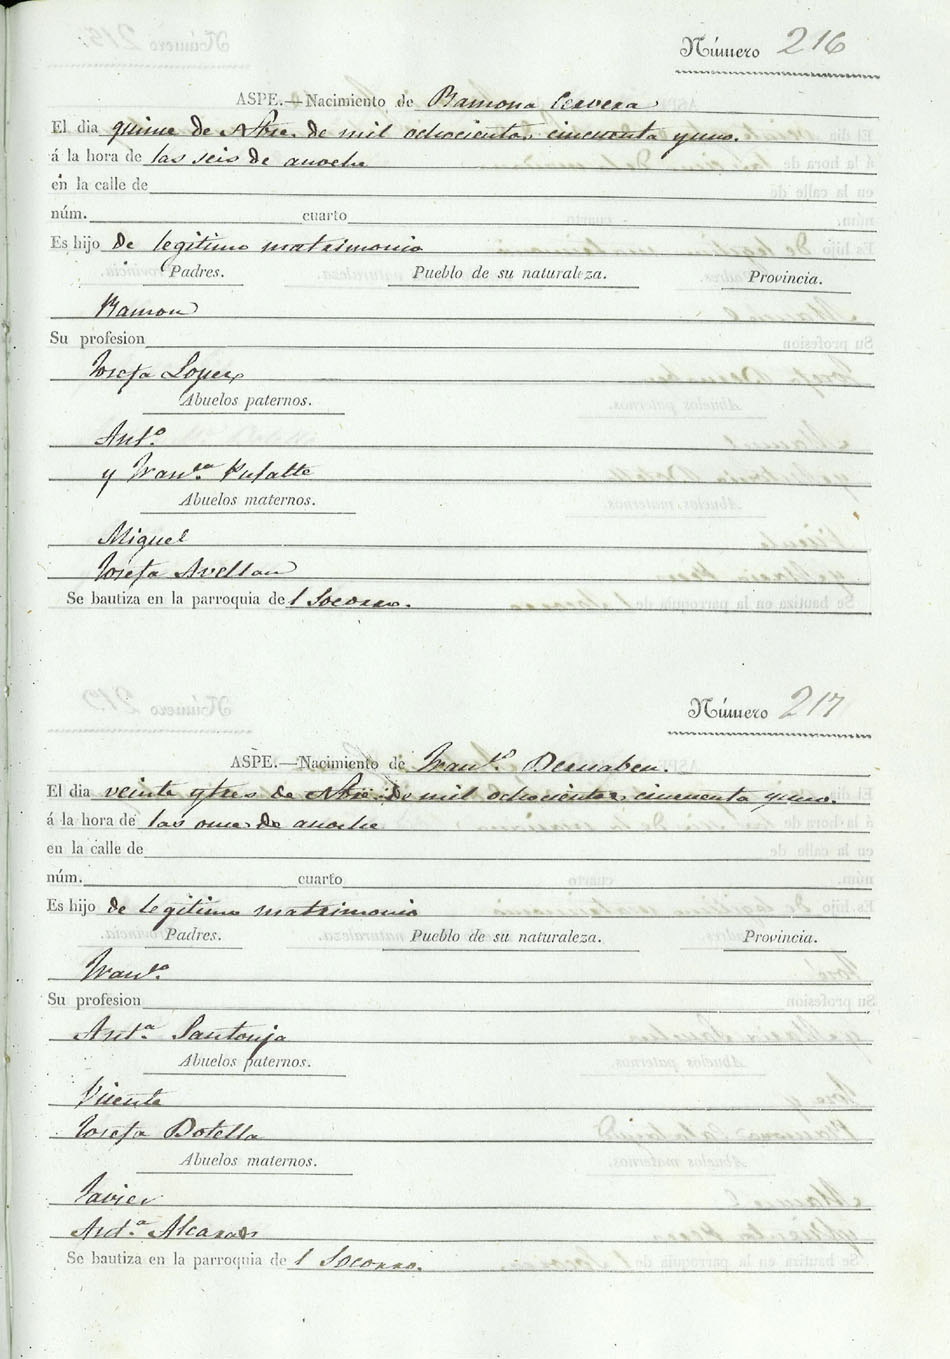 Número 216
ASPE.—Nacimiento de Ramona Cervera
El dia quince de Nbre. de mil ochocientos cincuenta y uno.
á la hora de las seis de anoche
en la calle de
núm. cuarto
Es hijo de legitimo matrimonio
Padres. Pueblo de su naturaleza. Provincia.
Ramon
Su profesion
Josefa Lopez
Abuelos paternos.
Antº
y Franca Pujalte
Abuelos maternos.
Miguel
Josefa Avellan
Se bautiza en la parroquia del Socorro.
Número 217
ASPE.—Nacimiento de Franco Bernabeu.
El dia veinte y tres de Nbre. de mil ochocientos cincuenta y uno.
á la hora de las once de anoche
en la calle de
núm. cuarto
Es hijo de legitimo matrimonio
Padres. Pueblo de su naturaleza. Provincia.
Franco
Su profesion
Antª Santonja
Abuelos paternos.
Vicente
Josefa Botella
Abuelos maternos.
Javier
Antª Alcaraz
Se bautiza en la parroquia del Socorro.